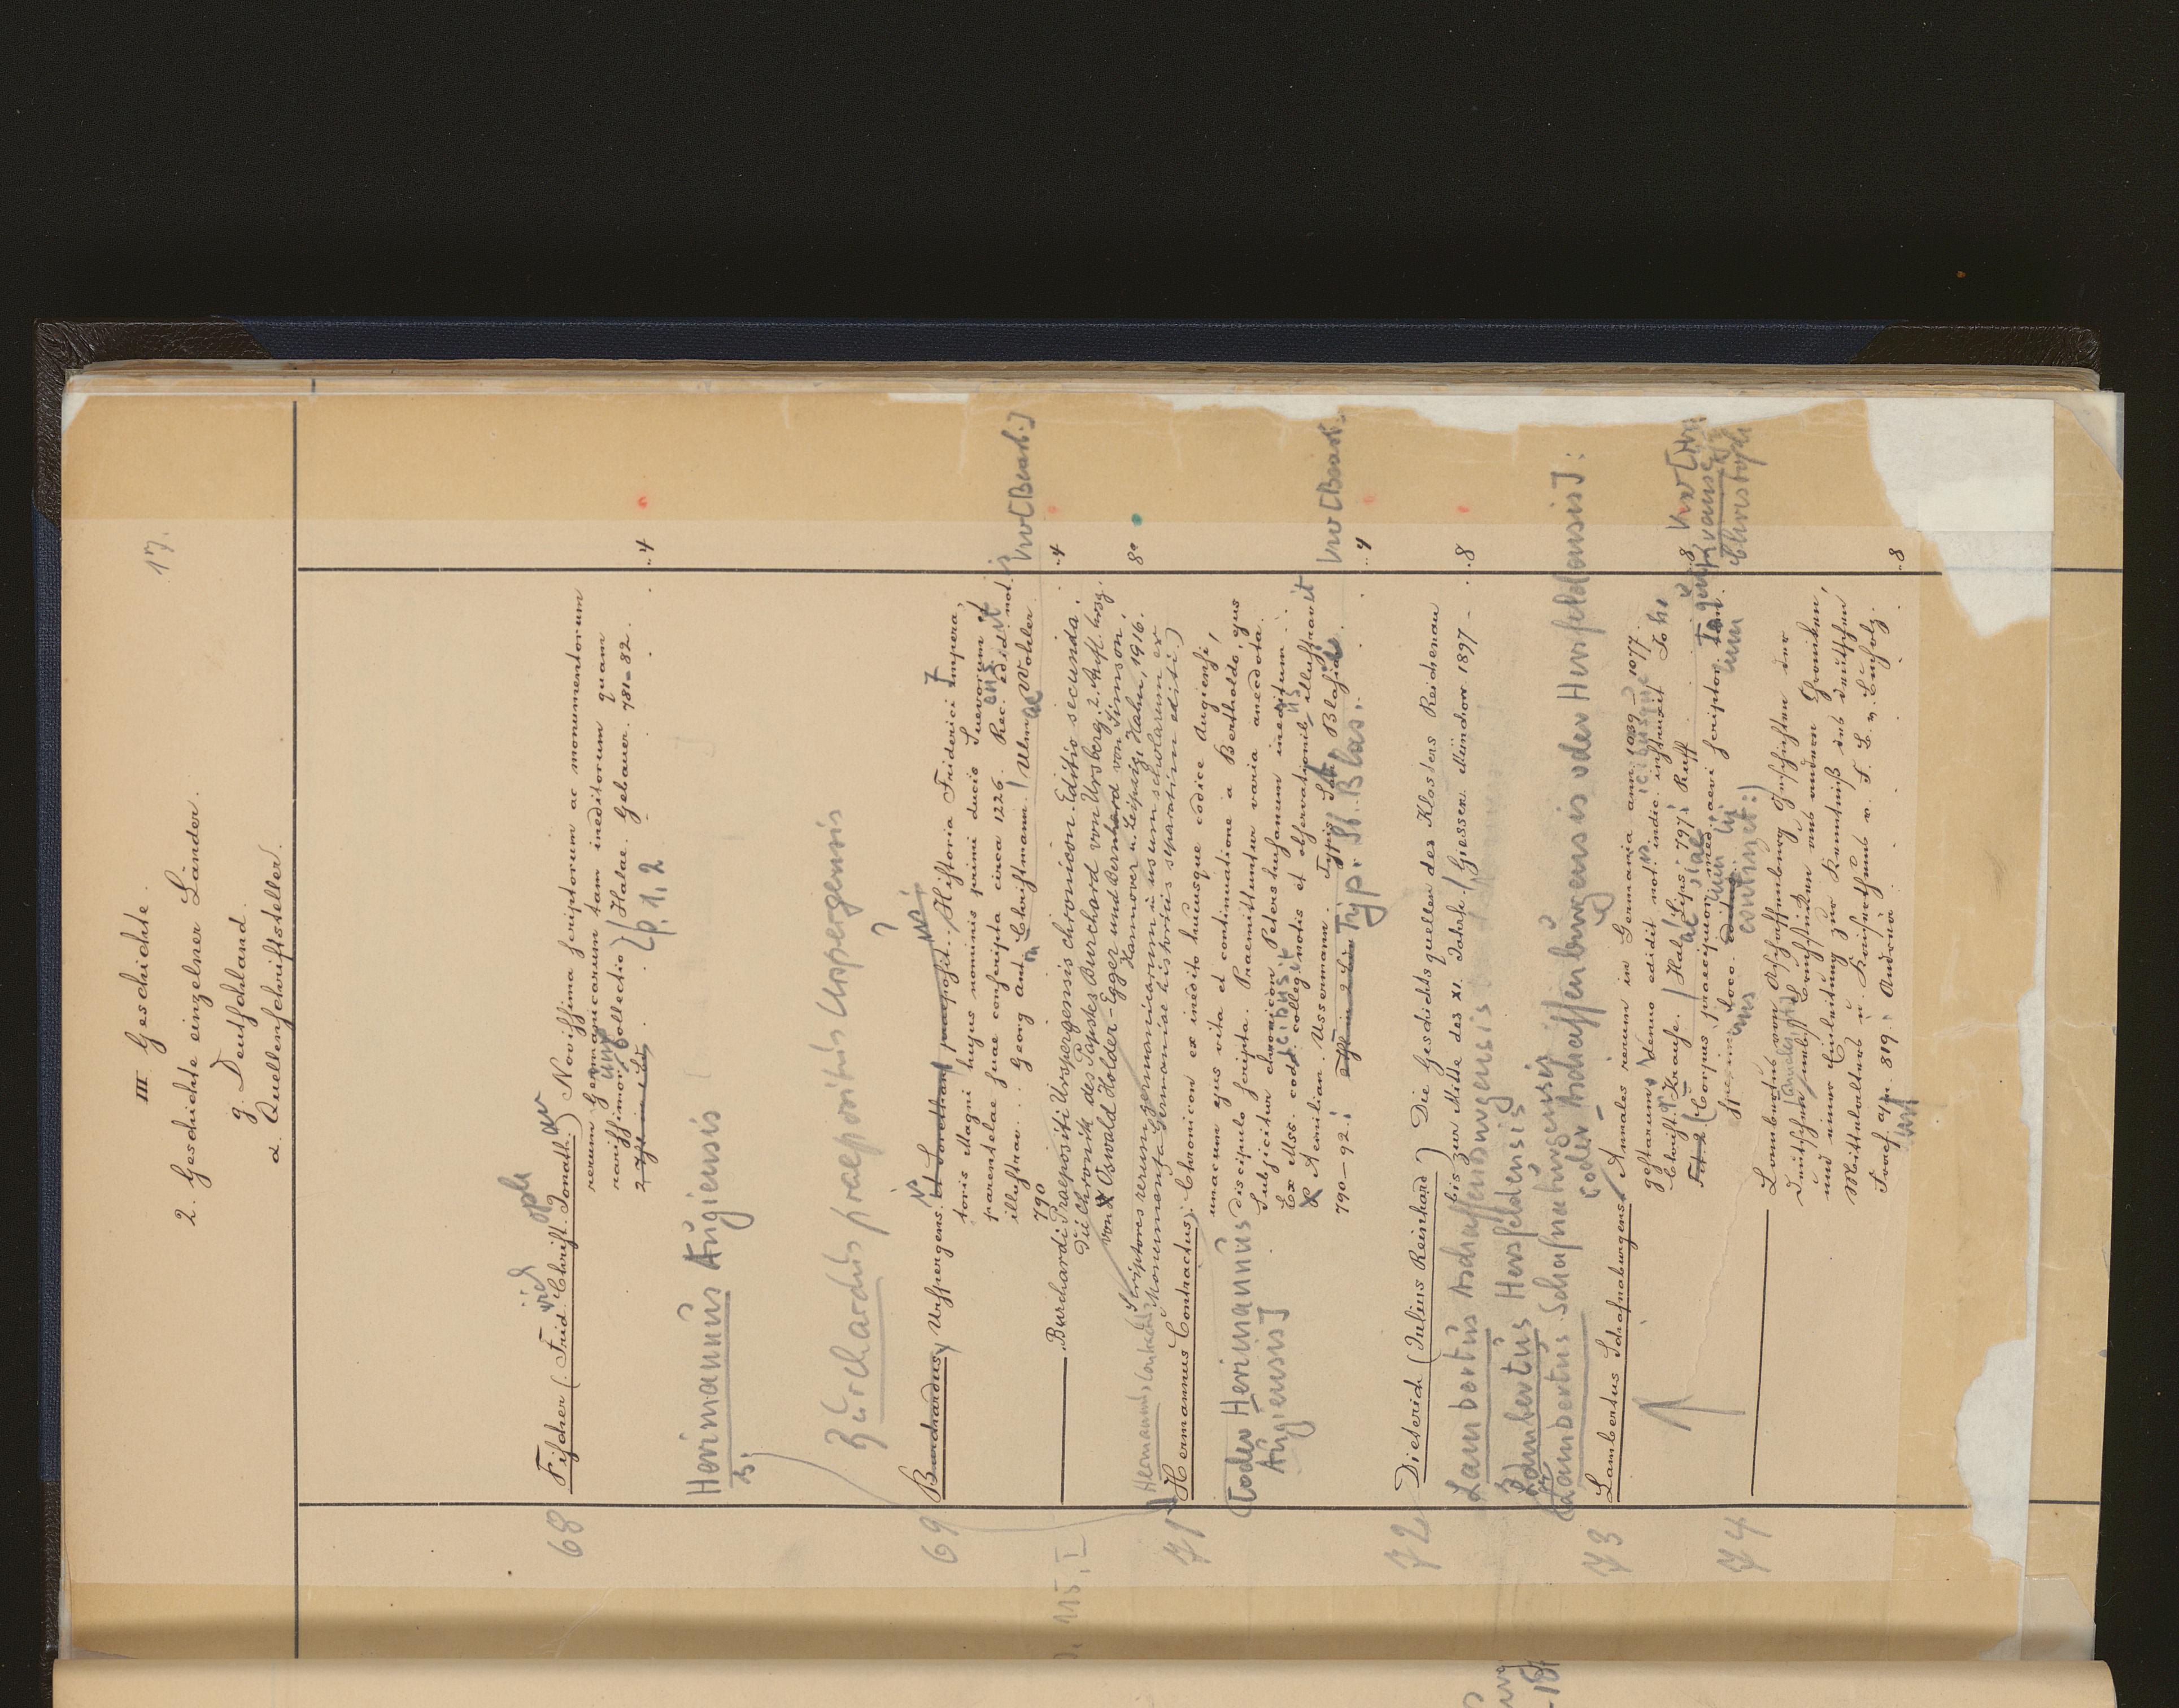 III Geschichte.
17.
2. Geschichte einzelner Länder.
g. Deutschland.
α. Quellenschriftsteller.
68 Fischer (Frid. Christ. Jonath.) Novissima scriptorum ac monumentorum
rerum Germanicarum tam ineditorum quam
rarissimor. Collectio / Halae. Gebauer. 781-82. ..4
[p. 1. 2
Herimannus Augiensis
s.
Burchardus praepositus Urspergensis ?
69 Burchardus, Urspergens. et praeposit. Historia Friderici impera,
toris Magni hujus nominis primi ducis Suevorum et
parentelae suae conscripta circa 1226. Rec. edid. not.
illustrav... Georg Ant. Christmann. / Ulm. Wohler
790 ..4
[Beash.]
Burchardi Praepositi Urspergensis chronicon. Editio secunda.
Die Chronik des Propstes Burchard von Ursberg. 2. Aufl. hrsg.
von Oswald Holder-Egger und Bernhard von Simson.
Hannover u. Leipzig: Hahn, 1916. 8°
(Scriptores rerum germanicarum in usum scholarum ex
Monumenta Germaniae historicis separatim editi.)
Hermannus Contractus
71 Hermannus Contractus: Chronicon ex inedito hucusque codice Augiensi,
unacum ejus vita et continuatione a Bertholdo, ejus
discipulo scripta. Praemittuntur varia anecdota.
Subjicitur chronicon Petershusanum ineditum.
Ex Mss. codd. colleg. notis et observationib. illustravit
P. Aemilian. Ussermann. Typis San. Blasian.
790-92. Typ. St. Blas. ..4
(oder Herimannus
Augiensis]
72 Dieterich (Julius Reinhard) Die Geschichtsquellen des Klosters Reichenau
bis zur Mitte des XI. Jahrh. / Giessen. München 1897 - ..8
Lambertus Aschaffenburgensis
Lambertus Hersfeldensis
(Lambertus Schafnaburgensis
oder Aschaffenburgensis oder Hersfeldensis]:
73 Lambertus Schafnaburgens. Annales rerum in Germania ann. 1039-1077
gestarum denuo edidit not. indic. instruxit Jo
Christ. Krause. / Hal. Lips. 797. Ruff ..8
(Corpus praecipuor. med. aevi scriptor.
continet:)
74 Lambertus von Aschaffenburg Geschichten der
Deutschen nebst Bruchstücken aus andern Chroniken,
und einer Einleitung zur Kenntniß des deutschen
Mittelalters u. Kaiserthums v. F. B. v. Buchholz.
Frcf a/m. 819. Andreä ..8